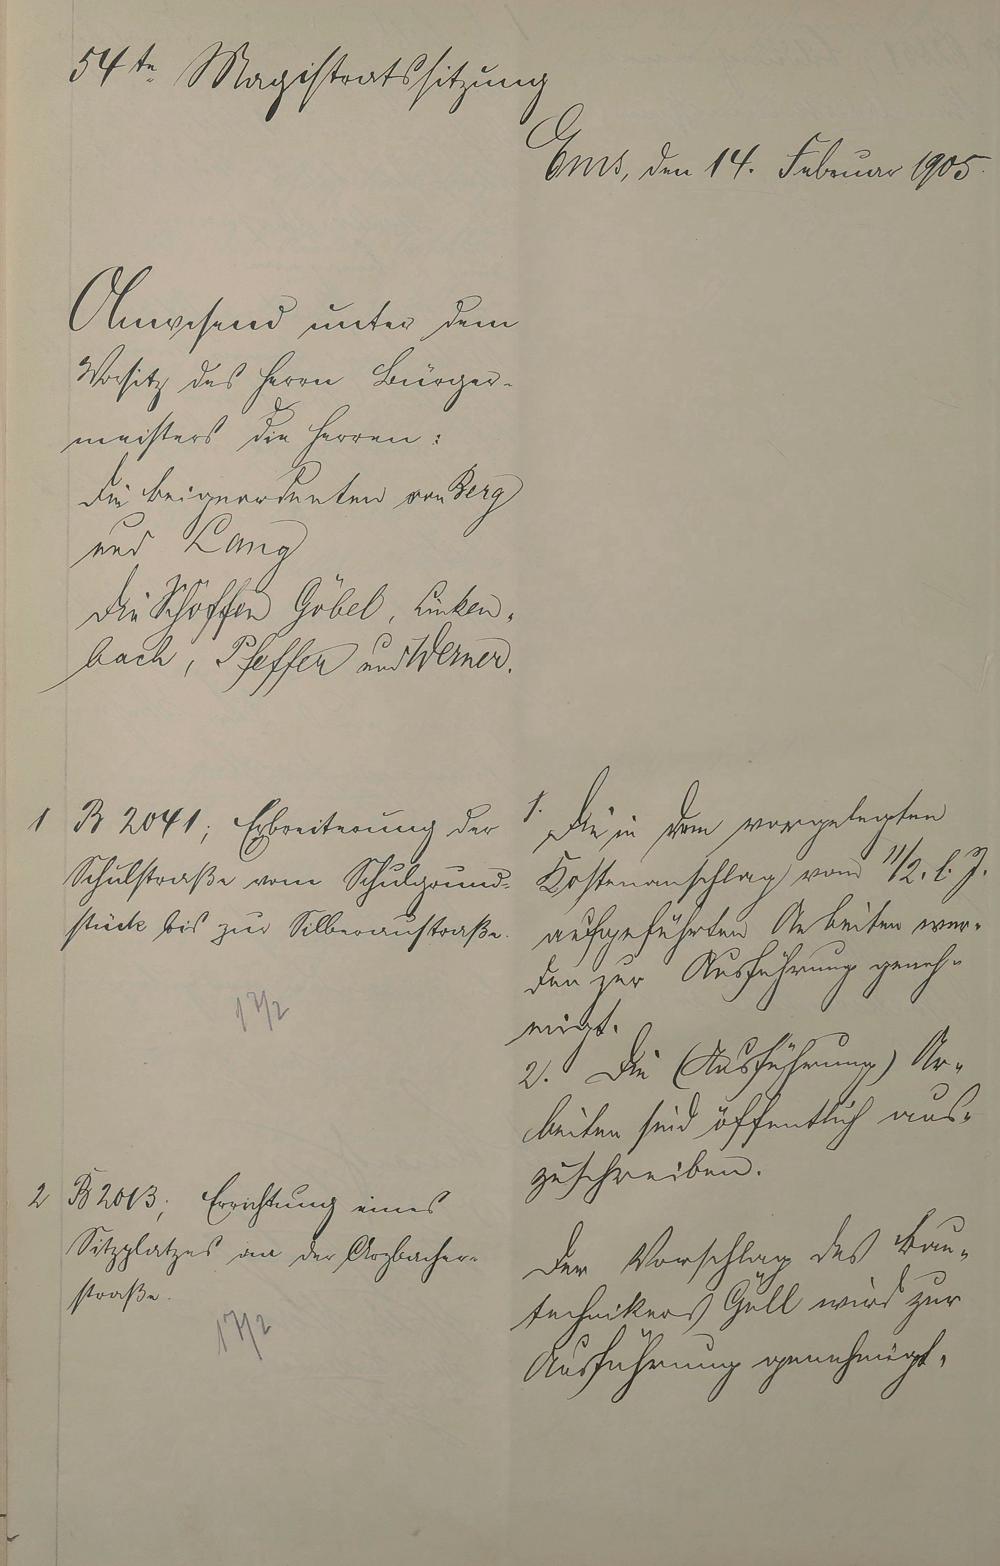 54te Magistratssitzung
Ems, den 14. Februar 1905.
Anwesend unter dem
Vorsitz des Herrn Bürger-
meisters die Herren:
die Beigeordneten von Berg
und Lang
die Schöffen Göbel, Linken-
bach, Pfeffer und Werner.
1 B 2041; Erbreiterung der
Schulstraße vom Schulgrund-
stück bis zur Silberaustraße.
17/2
1. Die in dem vorgelegten
Kostenanschlag vom 11/2. l. J.
aufgeführten Arbeiten wer-
den zur Ausführung geneh-
migt.
2. Die (Ausführung) Ar-
beiten sind öffentlich aus-
zuschreiben.
2 B 2013; Errichtung eines
Sitzplatzes an der Arzbacher-
straße.
17/2
Der Vorschlag des Bau-
technikers Güll wird zur
Ausführung genehmigt.